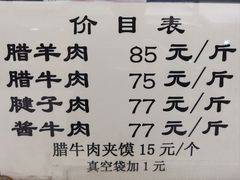 价目表
腊羊肉 85元/斤
腊牛肉 75元/斤
腱子肉 77元/斤
酱牛肉 77元/斤
腊牛肉夹馍15元/个
真空袋加1元